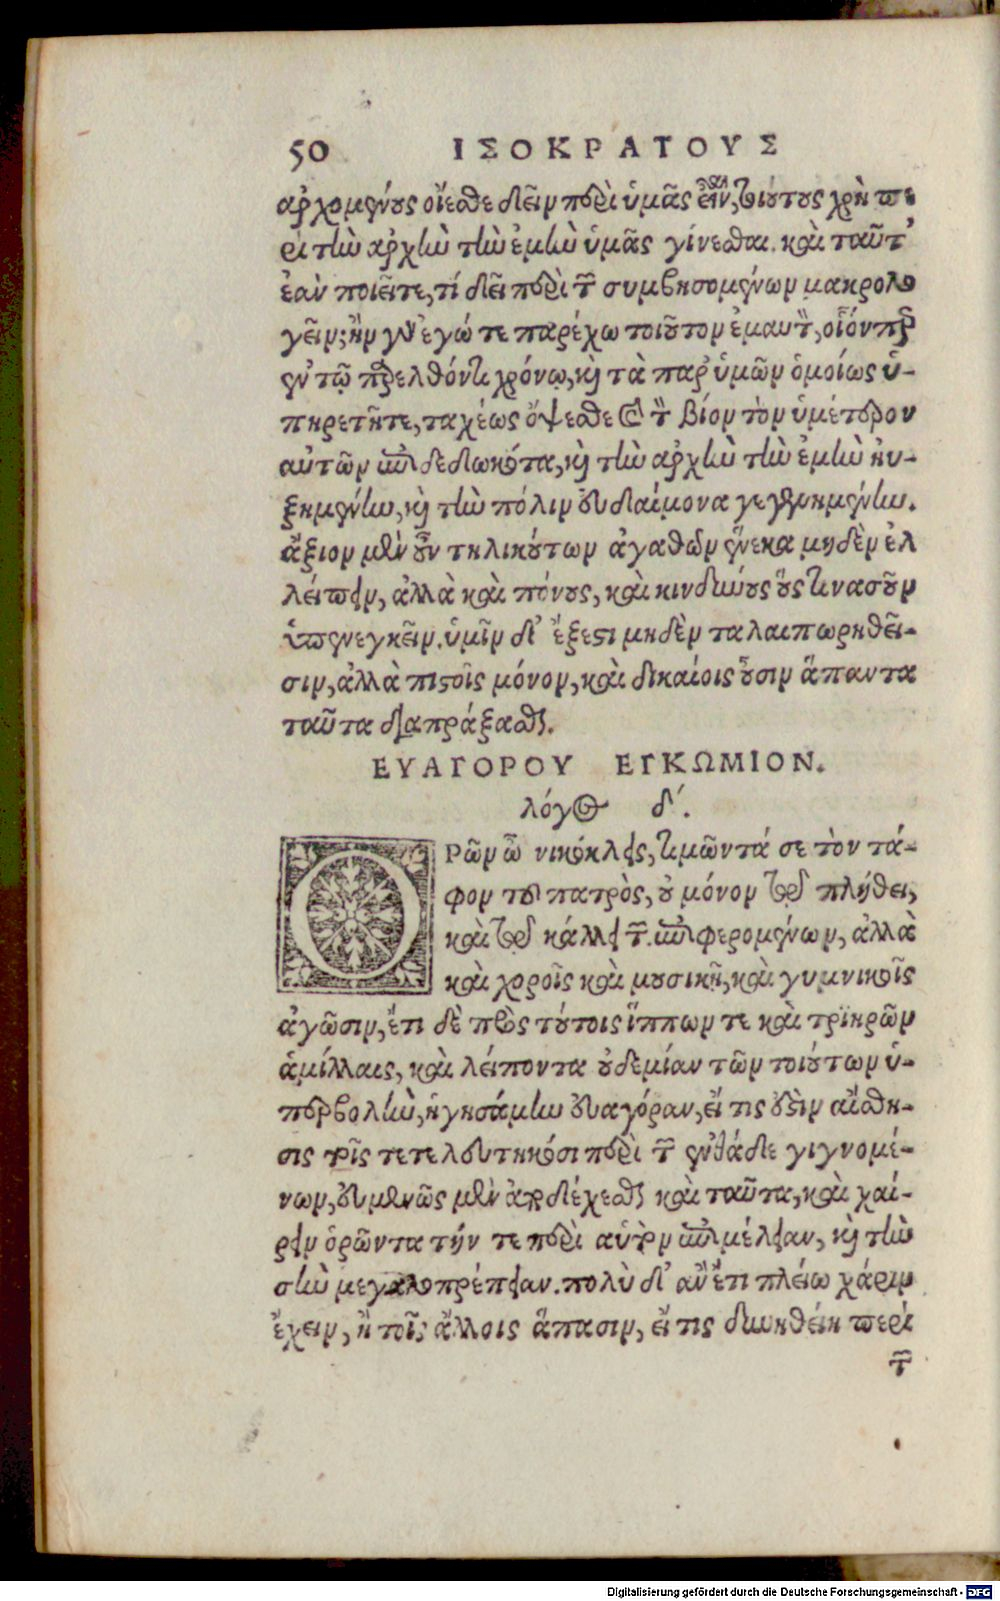 50 ΙΣΟΚΡΑΤΟΥΣ
αρχομένους οἴεσθε δεῖν περὶ ὑμᾶς εἶναι, τοιούτους χρὴ πε
ρι τὴν αρχὴν τὴν ἐμὴν ὑμᾶς γίνεσθαι. καὶ ταῦτ'
ἐὰν ποιεῖτε, τί δεῖ περὶ τῶν συμβησομένων μακρολο
γεῖν; ἢν γὰρ ἐγώ τε παρέχω τοιοῦτον ἐμαυτὸν, οἷόνπερ
ἐν τῷ παρελθόντι χρόνῳ, καὶ τὰ παρ' ὑμῶν ὁμοίως ὑ-
πηρετῆτε, ταχέως ὄψεσθε καὶ τὸν βίον τὸν ὑμέτερον
αὐτῶν ἐπιδεδωκότα, καὶ τὴν αρχὴν τὴν ἐμὴν ηυ-
ξημένην, καὶ τὴν πόλιν ευδαίμονα γεγενημένην.
ἄξιον μὲν οὖν τηλικούτων ἀγαθῶν ἕνεκα μηδὲν ἐλ
λείπειν, ἀλλὰ καὶ πόνους, καὶ κινδύνους οὕς τινασοῦν
ὑπενεγκεῖν. ὑμῖν δ' ἔξεστι μηδὲν ταλαιπωρηθεῖ-
σιν, ἀλλὰ πιστοῖς μόνον, καὶ δικαίοις οὖσιν ἅπαντα
ταῦτα διαπράξασθαι.
ΕΥΑΓΟΡΟΥ ΕΓΚΩΜΙΟΝ.
λόγος δ'.
ΟΡῶν ὦ νικόκλεις, τιμῶντά σε τὸν τά-
φον τοῦ πατρὸς, οὐ μόνον τῷ πλήθει,
καὶ τῷ κάλλει τῶν ἐπιφερομένων, ἀλλὰ
καὶ χοροῖς καὶ μουσικῇ, καὶ γυμνικοῖς
ἀγῶσιν, ἔτι δὲ πρὸς τούτοις ἵππων τε καὶ τριηρῶν
ἁμίλλαις, καὶ λείποντα οὐδεμίαν τῶν τοιούτων ὑ-
περβολὴν, ἡγησάμην ευαγόραν, εἴ τις ἐστὶν αἴσθη-
σις τοῖς τετελευτηκόσι περὶ τῶν ἐνθάδε γιγνομέ-
νων, ευμενῶς μὲν ἀποδέχεσθαι καὶ ταῦτα, καὶ χαί-
ρειν ὁρῶντα τήν τε περὶ αὑτὸν ἐπιμέλειαν, καὶ τὴν
σὴν μεγαλοπρέπειαν. πολὺ δ' ἂν ἔτι πλείω χάριν
ἔχειν, ἢ τοῖς ἄλλοις ἅπασιν, εἴ τις δυνηθείη περὶ
τῶν
Digitalisierung gefördert durch die Deutsche Forschungsgemeinschaft - DFG